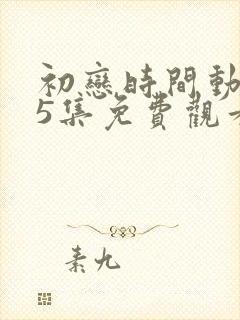 初戀時間動
5集免費觀看
素九